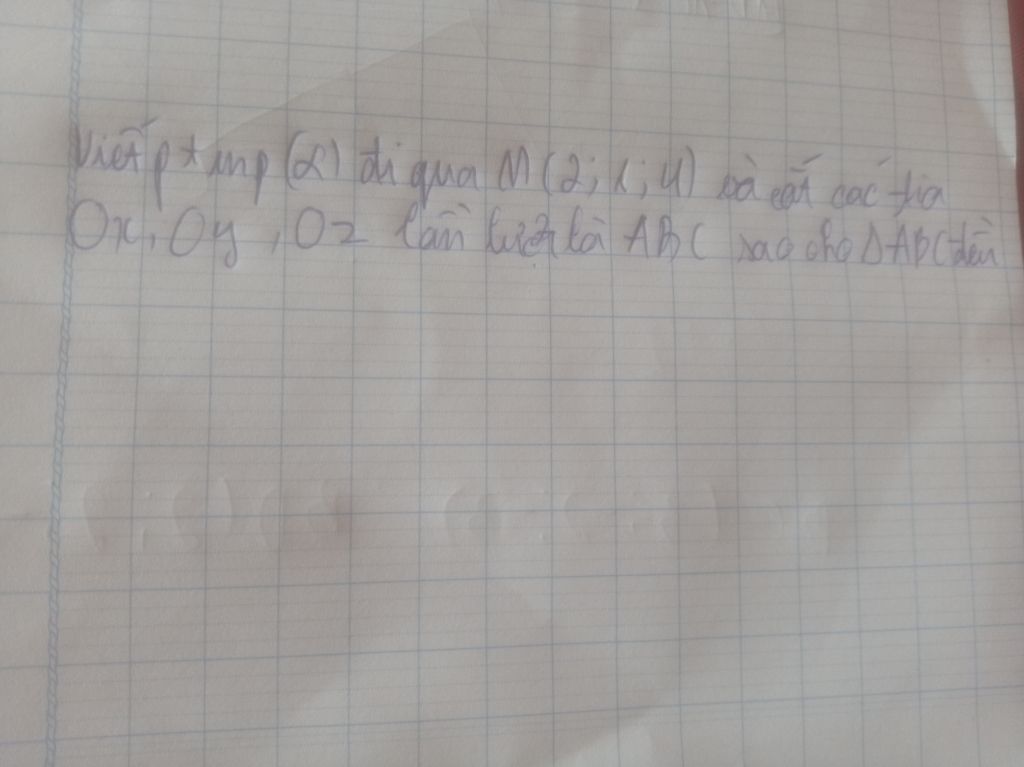 Viết pt mp (α) đi qua M(2; 1; 4) và cắt các tia
Ox, Oy, Oz lần lượt là ABC sao cho ΔABC đều